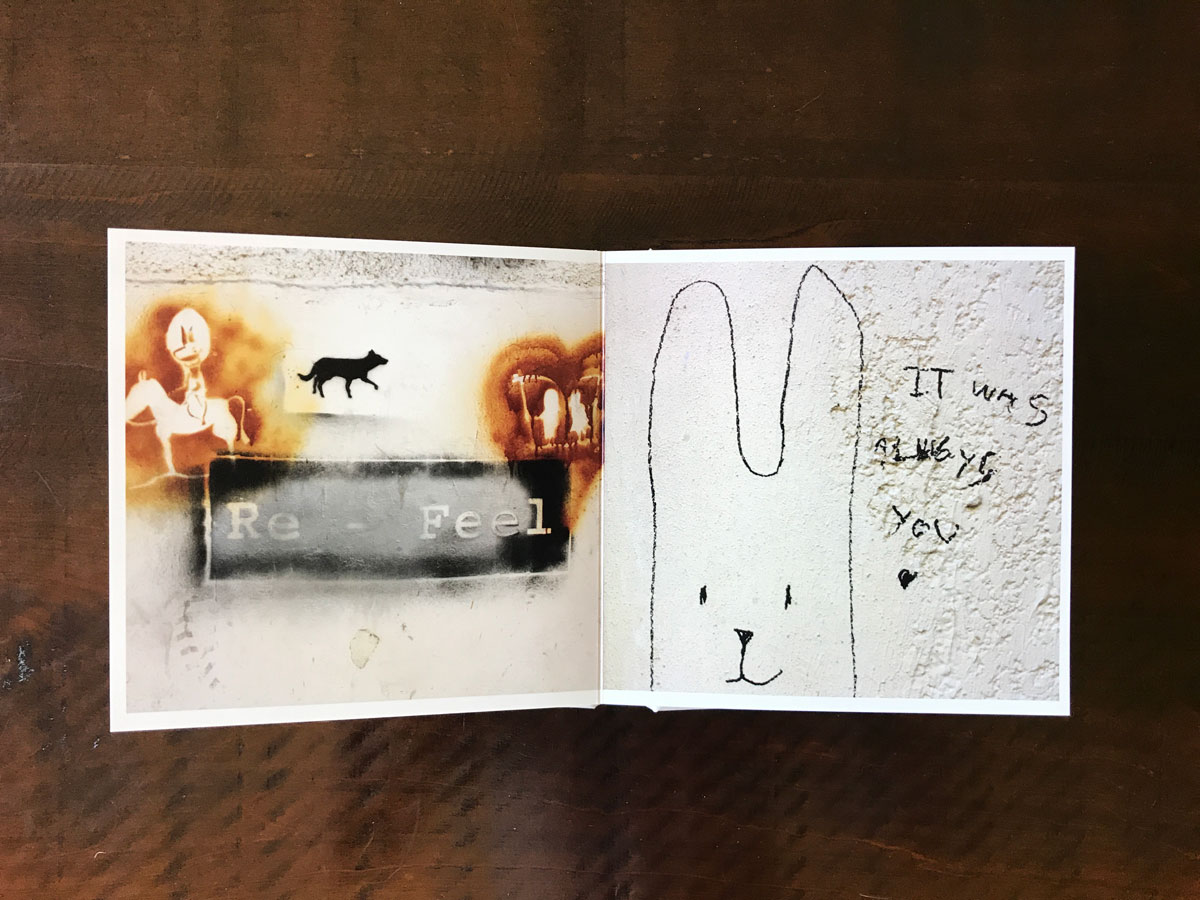 Re - Feel
IT WAS
ALWAYS
YOU